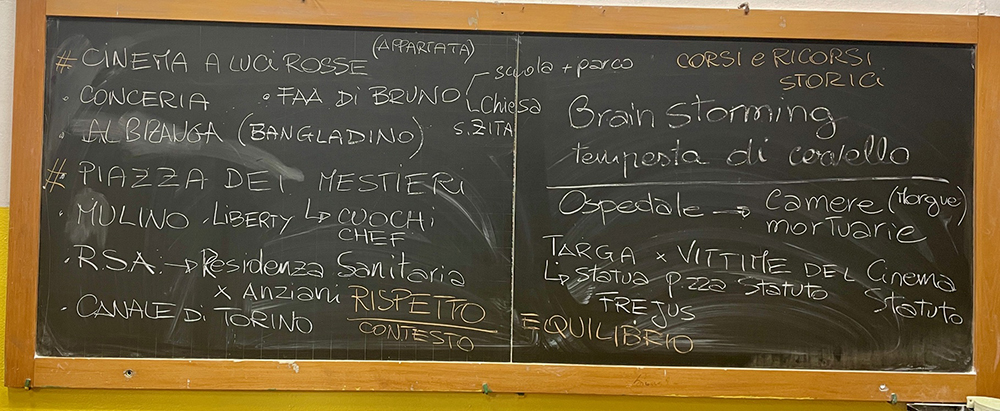 # CINEMA A LUCI ROSSE (APPARTATA)
· CONCERIA · FAA DI BRUNO scuola + parco
Chiesa
S. ZITA
(BANGLADINO)
# PIAZZA DEI MESTIERI
· MULINO · LIBERTY ↳ CUOCHI
CHEF
· R.S.A. → Residenza Sanitaria
x Anziani
· CANALE DI TORINO
RISPETTO
CONTESTO
EQUILIBRIO
CORSI e RICORSI
STORICI
Brain storming
tempesta di cervello
Ospedale → Camere (Morgue)
mortuarie
TARGA x VITTIME DEL Cinema
↳ Statua p.zza Statuto Statuto
FREJUS